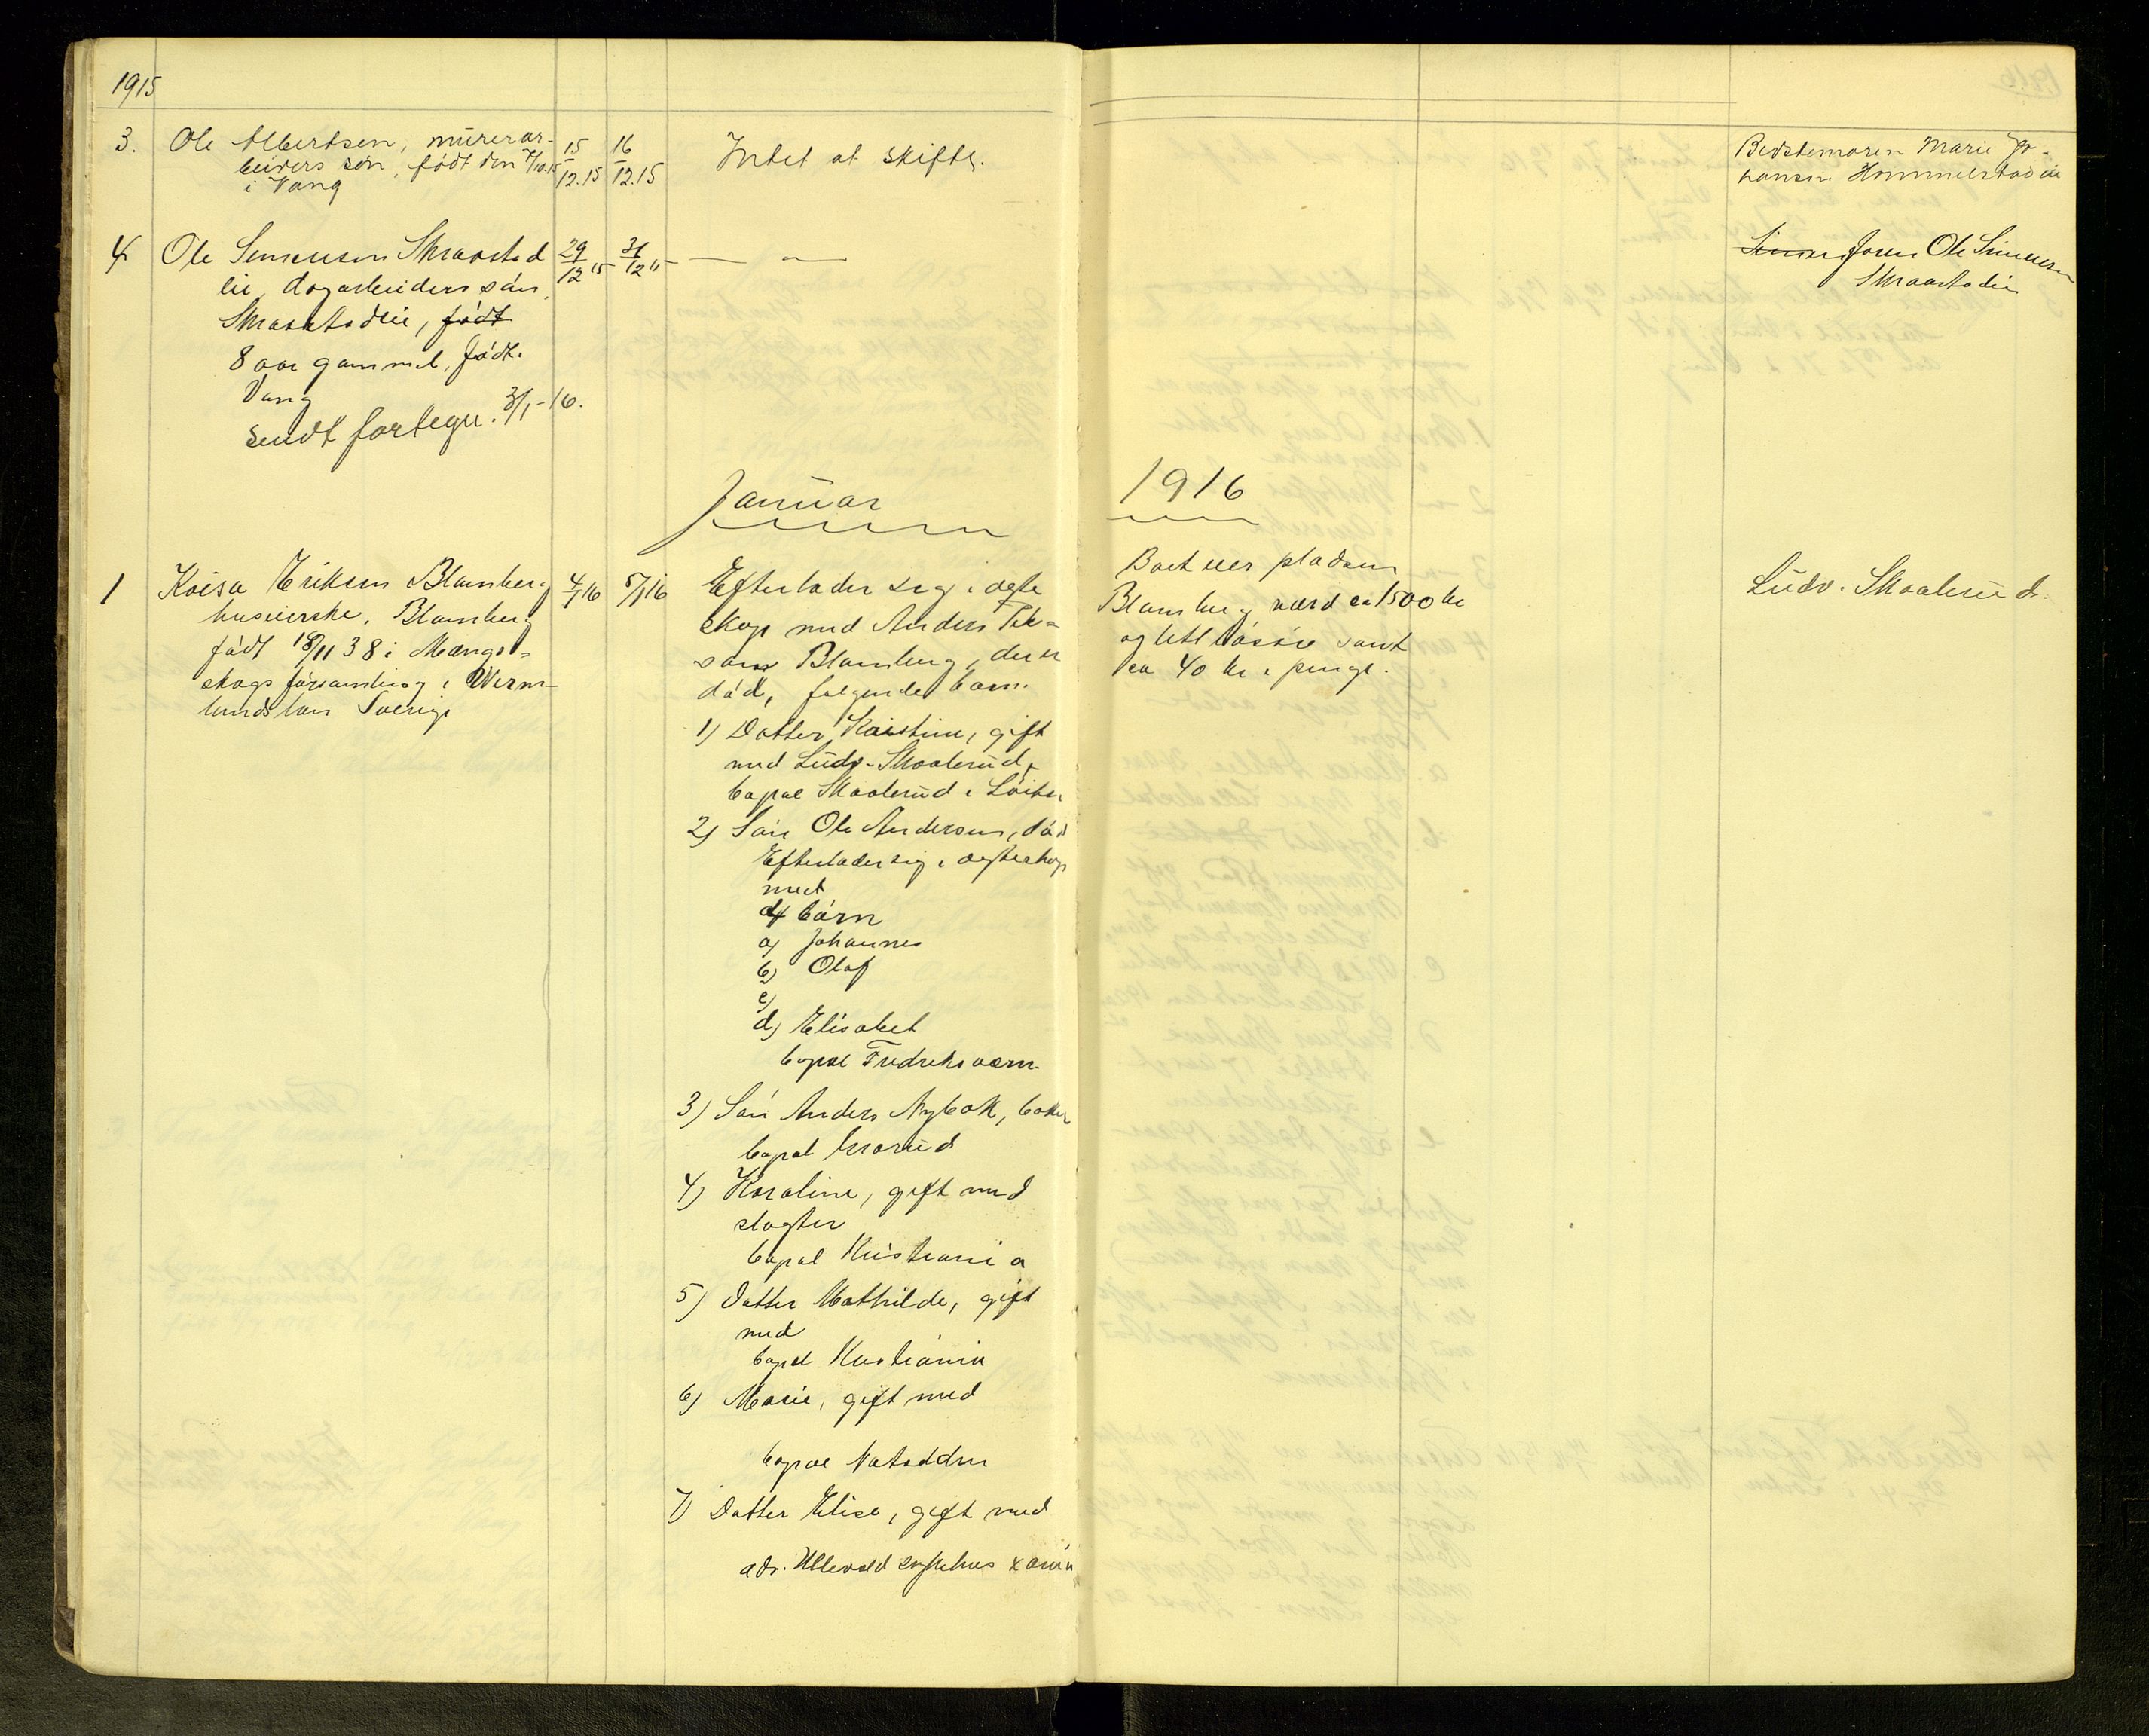 1915
3. Ole Albertsen, murerar- 15/12.15 16/12.15 Intet at skifte. Bedstemoren Marie Jo-
beiders søn, født den 7/10.15 hansen Hommelstad
i Vang
4 Ole Simensen Skraastad 29/12 15 31/12 15 — " — Simen Faren Ole Simensen
lie, dagarbeiders søn, Skraastadlie
Skraastadlie, født
8 aar gammel, født
Vang
Sendt fortegn. 3/1-16.
Januar 1916
1 Kaisa Eriksen Blamberg 4/1 16 5/1 16 Efterlader seg i egte Boet eier pladsen Ludv. Skaalerud.
huseierske, Blamberg skap med Anders Blamberg værd ca 1500 kr
født 18/11 38 i Mangs- Blamberg, der er og litt løsøre samt
skogs församling i Werm- død, følgende barn. ca 40 kr i penge.
lands län Sverige
1) Datter Kristine, gift
med Ludv. Skaalerud,
bopæl Skaalerud i Løiten
2) Søn Ole Andersen, død
Efterlader sig i egteskap
med
4 børn
a) Johannes
b) Olaf
c)
d) Elisabet
bopæl Fredriksværn
3) Søn Anders Nybakk, baker
bopæl Grorud
4) Karoline, gift med
slagter
bopæl Kristiania
5) Datter Mathilde, gift
med
bopæl Kristiania
6) Marie, gift med
bopæl Notodden
7) Datter Elise, gift med
adr. Ullevold sykehus Xania